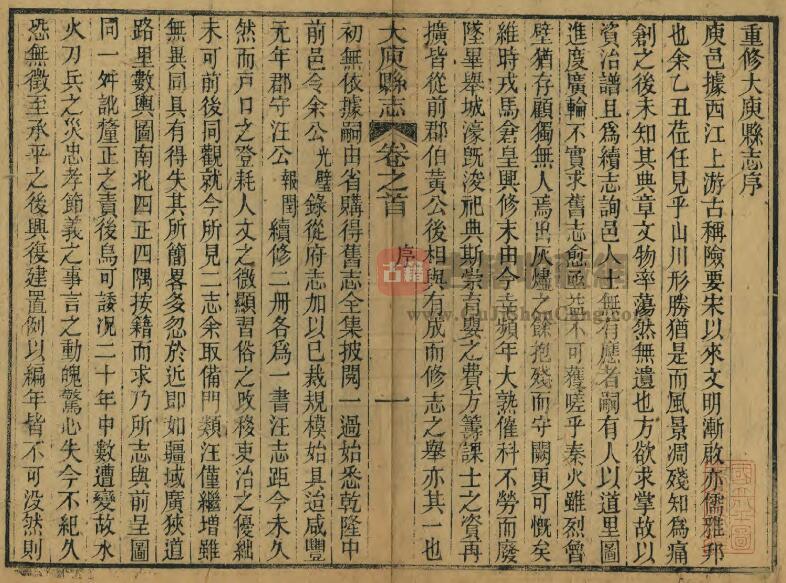 重修大庾縣志序
庾邑據西江上游古稱險要宋以來文明漸啟亦儒雅邦
也余乙丑莅任見乎山川形勝猶是而風景凋殘知為痛
創之後未知其典章文物率蕩然無遺也方欲求掌故以
資治譜且爲續志詢邑人士無有應者嗣有人以道里圖
進度廣輪不實求舊志愈亟 不可獲嗟乎秦火雖烈曾
壁猶存顧獨無人焉出灰燼之餘抱殘而守闕更可慨矣
維時戎馬倉皇興修未由今幸頻年大熟催科不勞而廢
墜畢舉城濠既浚祀典斯崇育嬰之費方籌課士之資再
擴皆從前郡伯黃公後相與有成而修志之舉亦其一也
大庾縣志 卷之首 序 一
初無依據嗣由省購得舊志全集披閱一過始悉乾隆中
前邑令余公光璧錄從府志加以巳裁規模始具迨咸豐
元年郡守汪公報閏續修二冊各爲一書汪志距今未久
然而戶口之登耗人文之微顯習俗之攺移吏治之優絀
未可前後同觀就今所見二志余取備門類汪僅繼增雖
無異同具有得失其所簡畧多忽於近即如疆域廣狹道
路里數輿圖南北四正四隅按籍而求乃所志與前呈圖
同一舛訛釐正之責後烏可諉况二十年中數遭變故水
火刀兵之災忠孝節義之事言之動魄驚心失今不紀久
恐無徵至承平之後興復建置例以編年皆不可没然則
古籍
www.GuJiShouCang.com